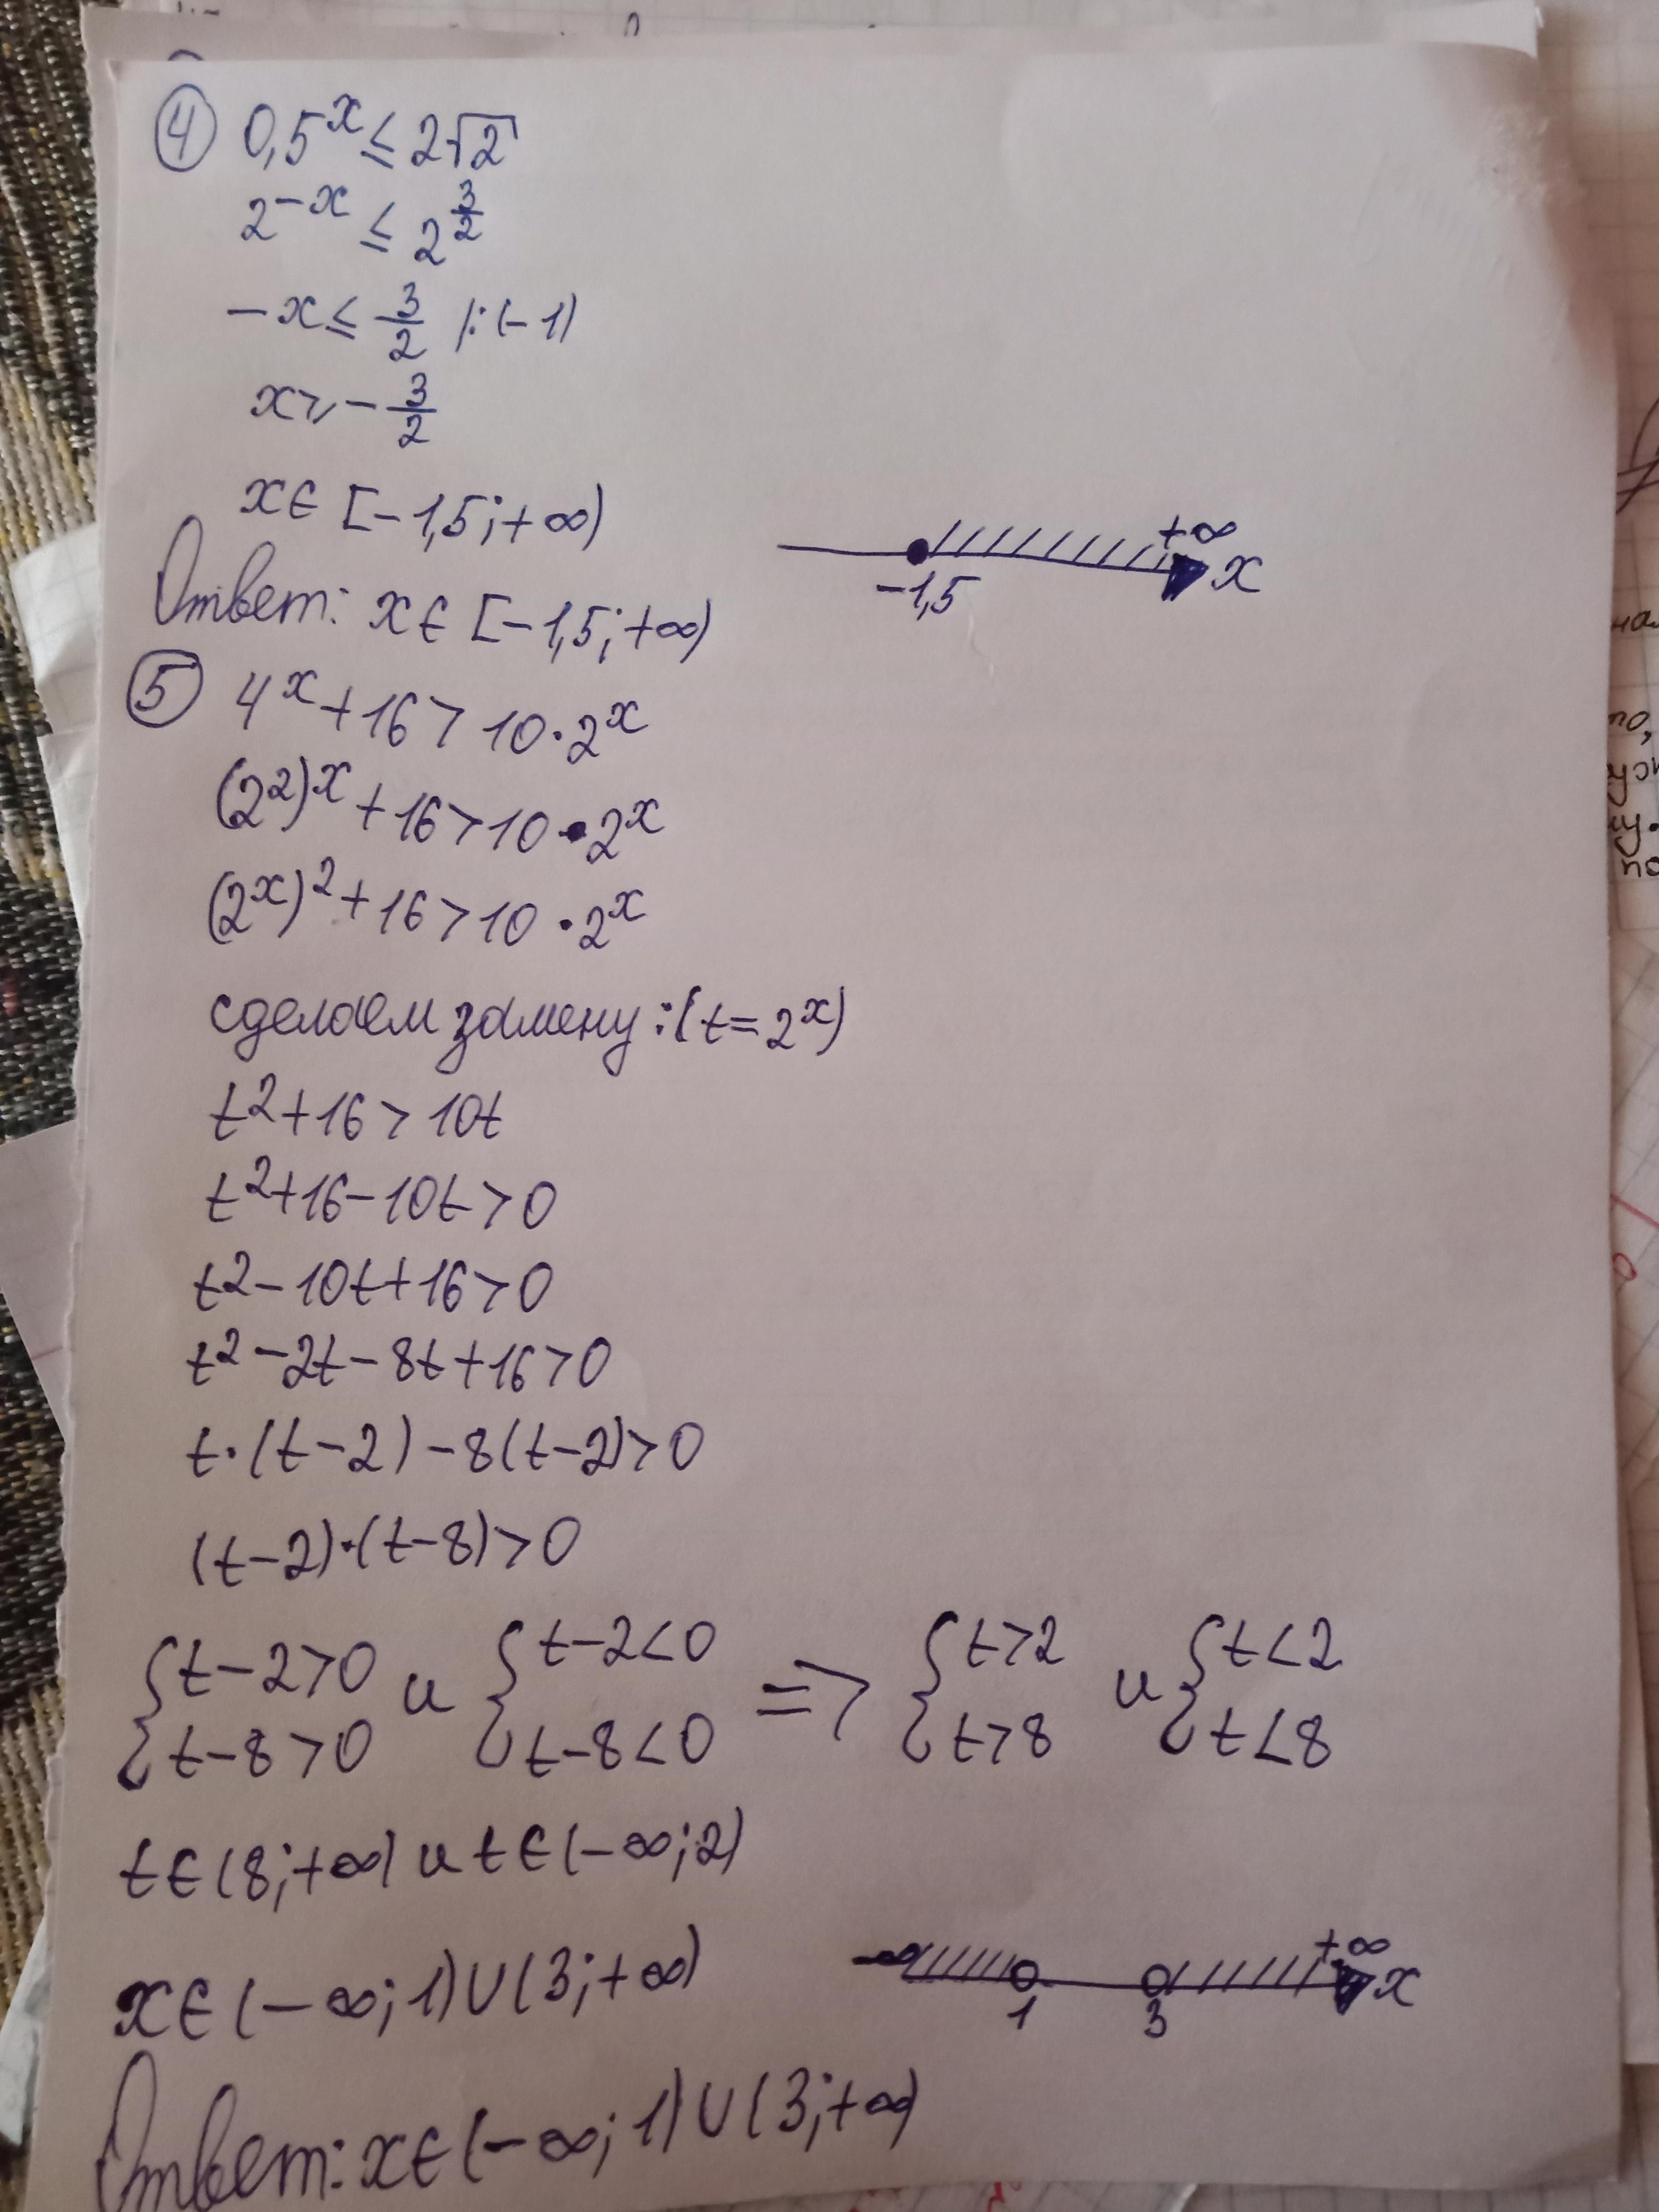 ④ 0,5^x ≤ 2√2
2^{-x} ≤ 2^{3/2}
-x ≤ 3/2 /:(-1)
x ⩾ - 3/2
x∈ [-1,5;+∞)
+∞
-1,5 x
Ответ: x∈ [-1,5;+∞)
⑤ 4^x+16 > 10·2^x
(2^2)^x+16>10·2^x
(2^x)^2+16>10·2^x
сделаем замену:(t=2^x)
t^2+16>10t
t^2+16-10t>0
t^2-10t+16>0
t^2-2t-8t+16>0
t·(t-2)-8(t-2)>0
(t-2)·(t-8)>0
{t-2>0 и {t-2<0 => {t>2 и {t<2
{t-8>0 {t-8<0 {t>8 {t<8
t∈(8;+∞) и t∈(-∞;2)
x∈(-∞;1)∪(3;+∞)
-∞ +∞
1 3 x
Ответ: x∈(-∞;1)∪(3;+∞)
но,